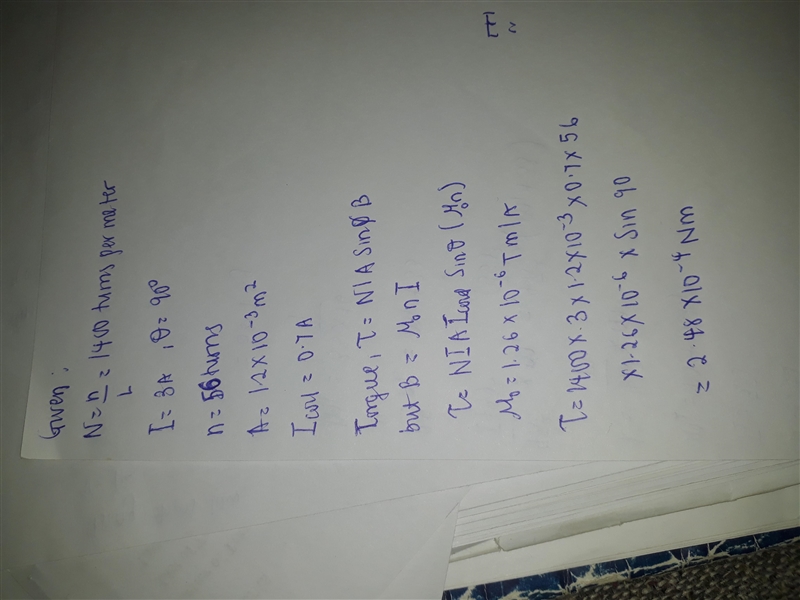 Given:
N = n/L = 1400 turns per meter
I = 3A, θ = 90°
n = 56 turns
A = 1.2 × 10⁻³ m²
I coil = 0.7A
Torque, τ = NIA Sinθ B
but B = μ₀ n I
τ = NIA I coil Sinθ (μ₀n)
μ₀ = 1.26 × 10⁻⁶ Tm/A
τ = 1400 × 3 × 1.2 × 10⁻³ × 0.7 × 56
× 1.26 × 10⁻⁶ × Sin 90
= 2.48 × 10⁻⁴ Nm